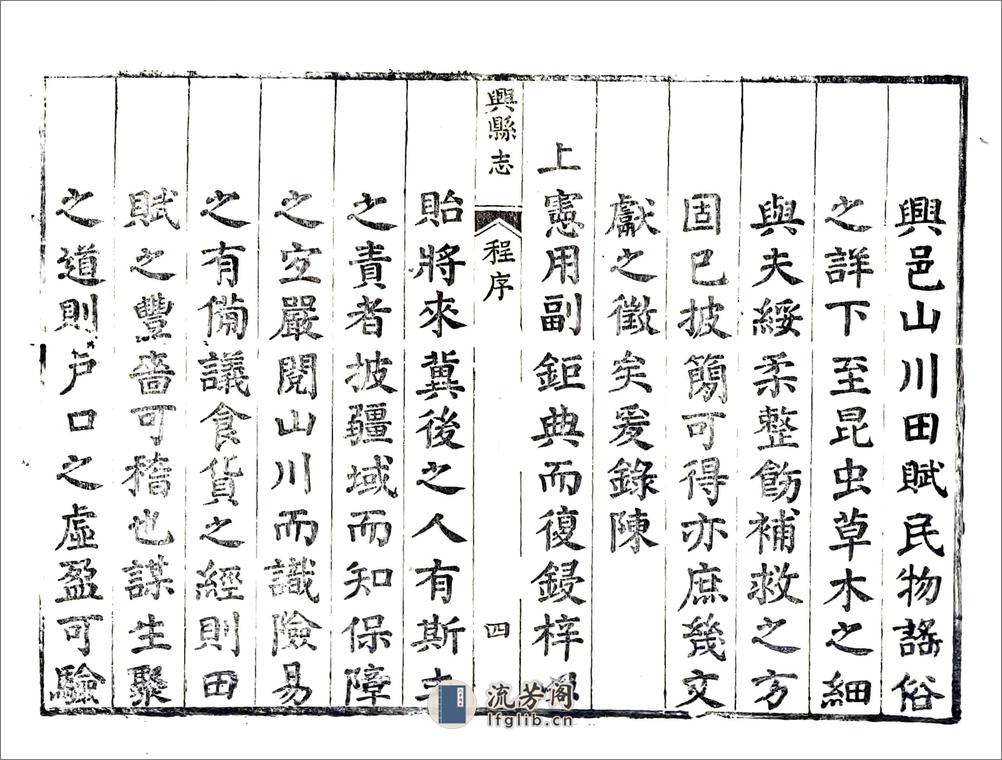 興邑山川田賦民物謠俗
之詳下至昆虫草木之細
與夫綏柔整飭補救之方
固已披簡可得亦庶幾文
獻之徵矣爰錄陳
上憲用副鉅典而復鋟梓
興縣志
程序
四
貽將來冀後之人有斯土
之責者披疆域而知保障
之宜嚴閱山川而識險易
之有備議食貨之經則田
賦之豐嗇可稽也謀生聚
之道則戶口之虛盈可驗
流芳阁
lfglib.cn